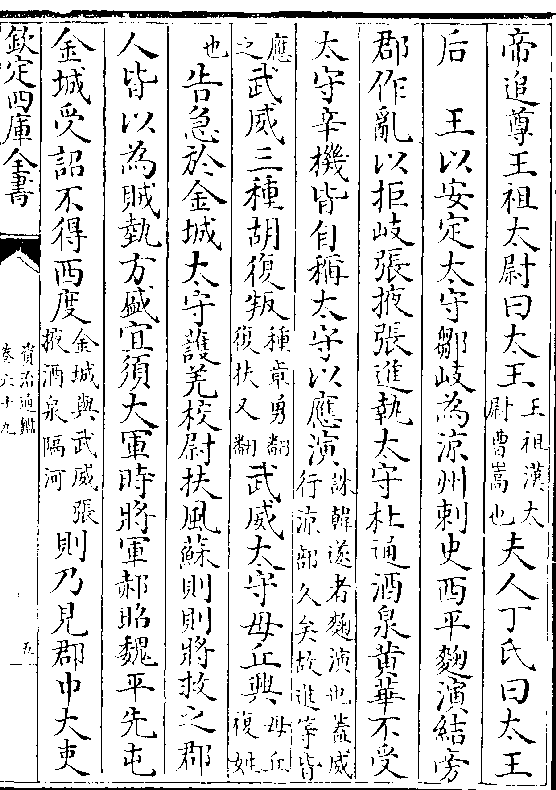 帝追尊王祖太尉曰太王王祖漢太尉曹嵩也夫人丁氏曰太王
后　王以安定太守鄒岐為涼州刺史西平麴演結旁
郡作亂以拒岐張掖張進執太守杜通酒泉黄華不受
太守辛機皆自稱太守以應演誅韓遂者麴演也葢威行涼部久矣故進等皆
應之武威三種胡復叛種章勇翻復扶又翻武威太守毋丘興毋丘復姓
也告急於金城太守護羌校尉扶風蘇則則將救之郡
人皆以為賊埶方盛宜須大軍時將軍郝昭魏平先屯
金城受詔不得西度金城與武威張掖酒泉隔河則乃見郡中大吏
欽定四庫全書
資治通鑑
卷六十九
五